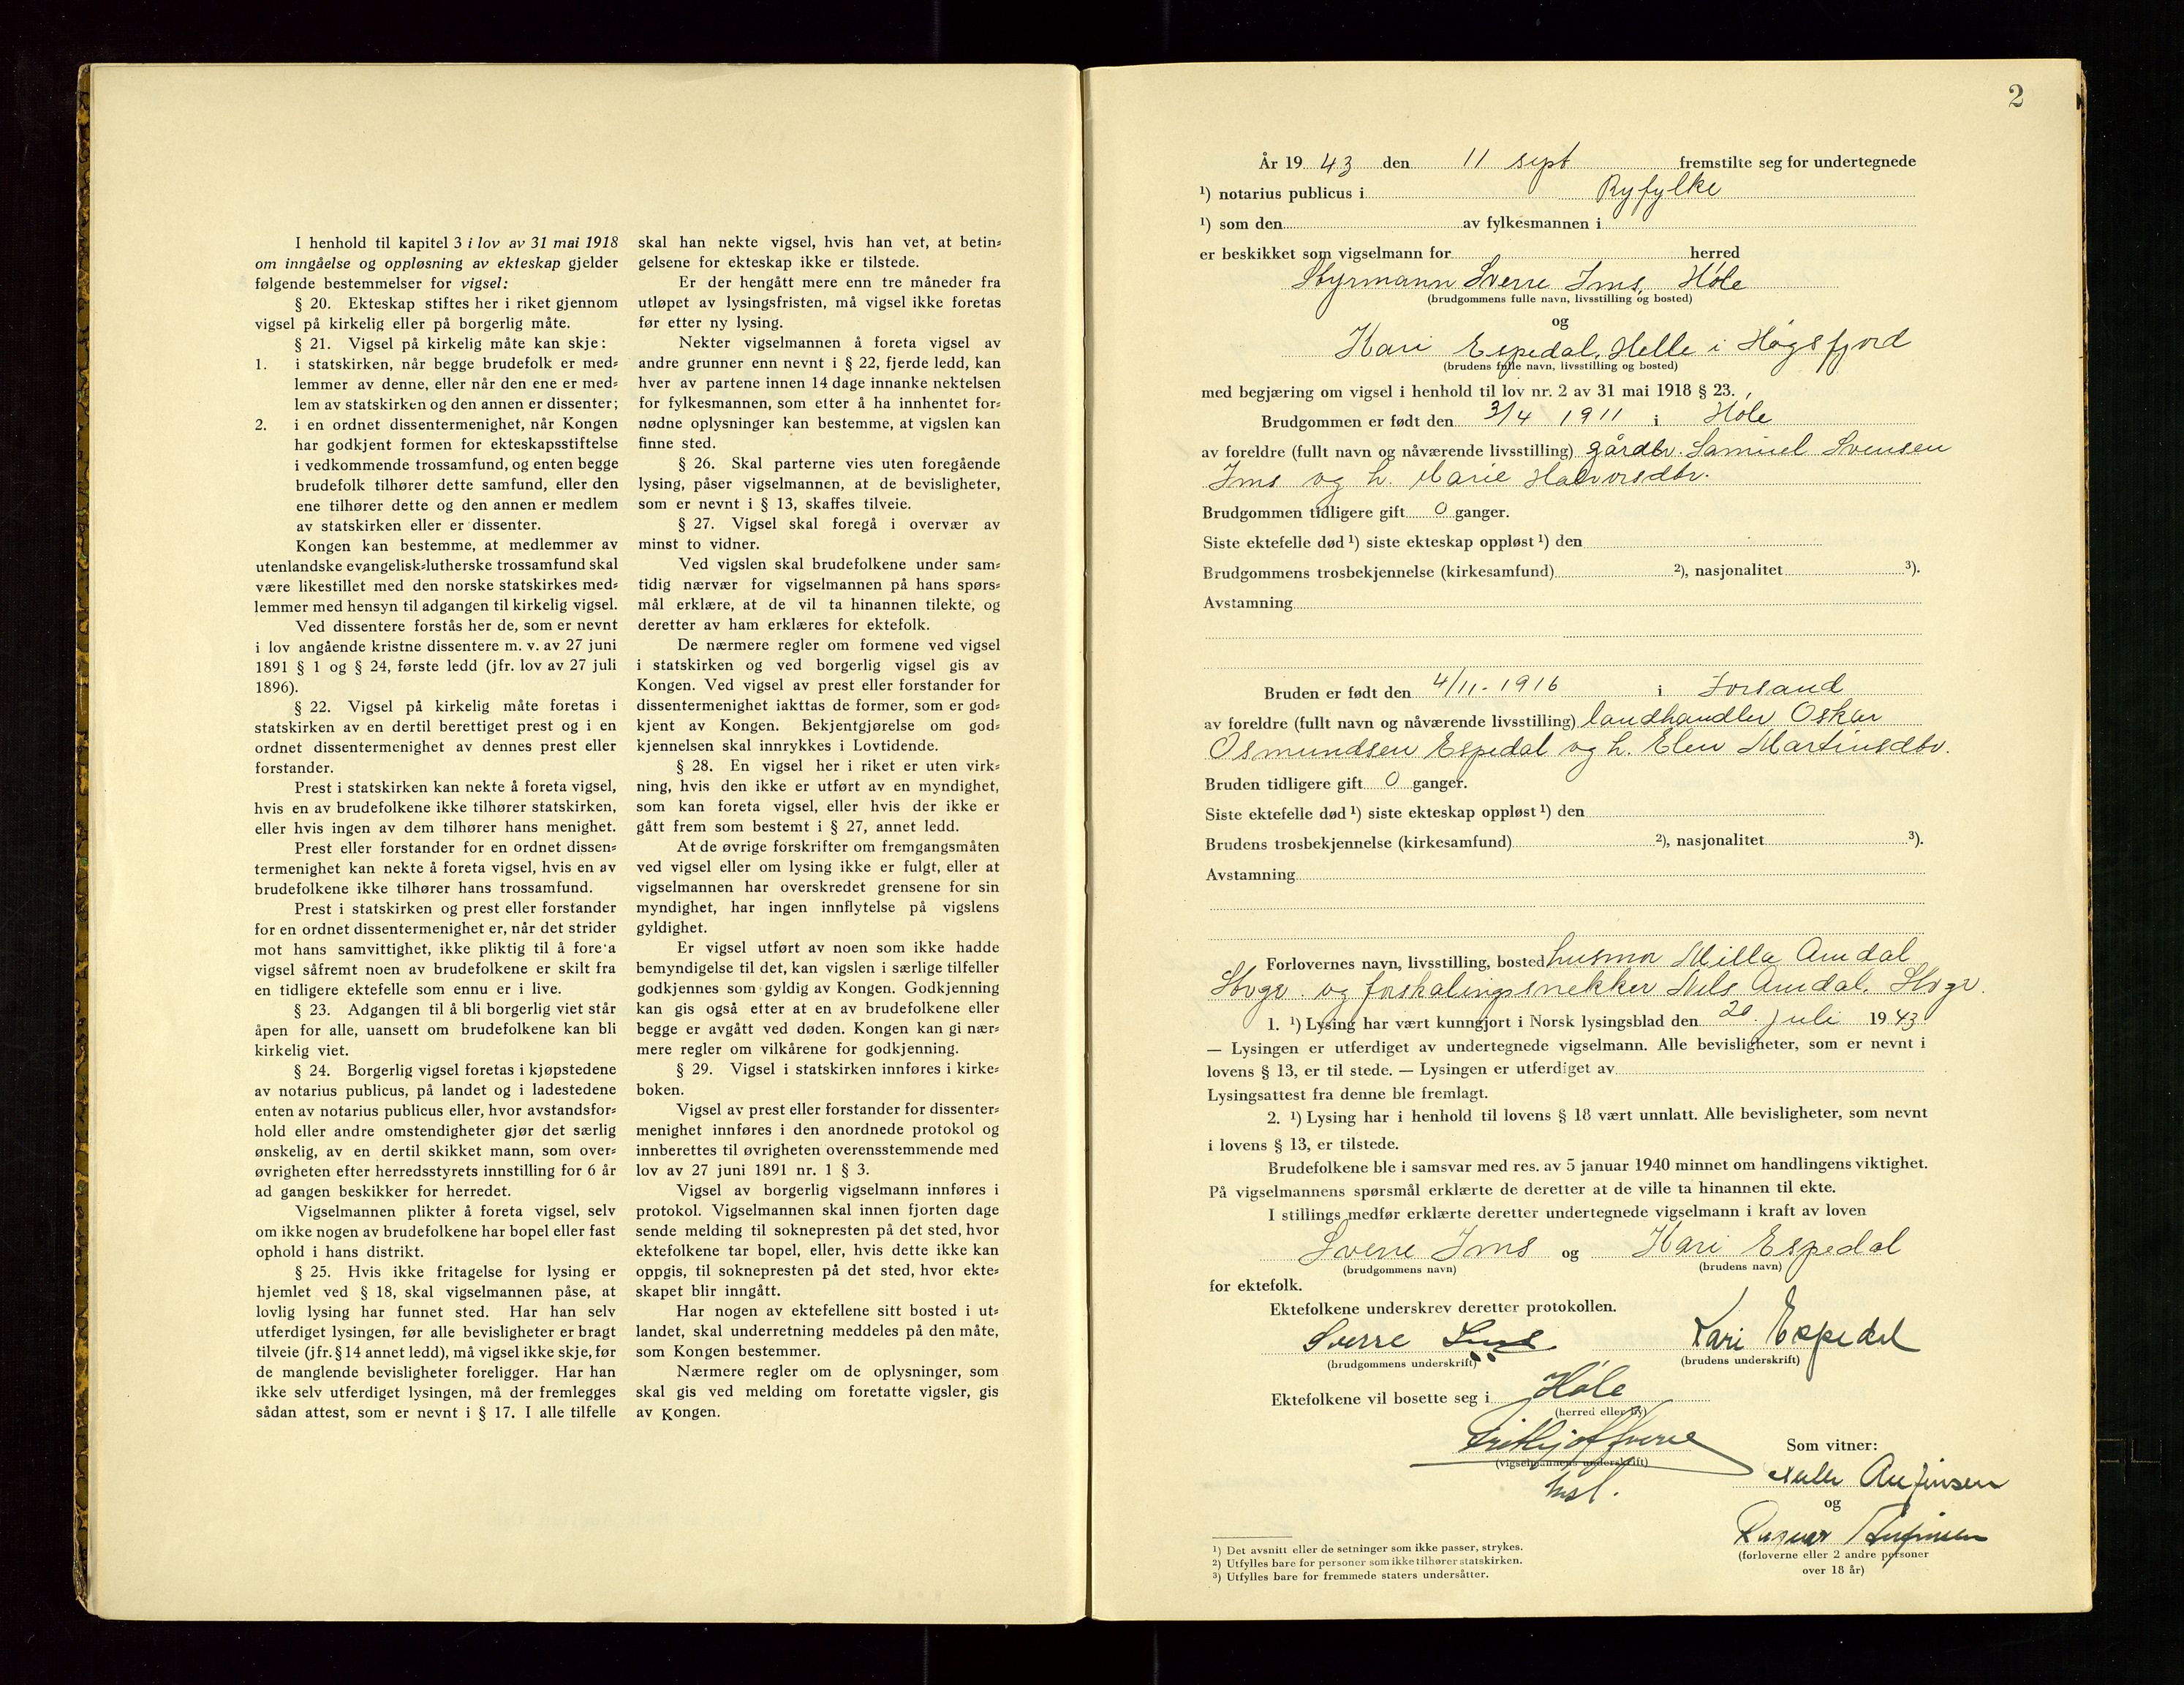 I henhold til kapitel 3 i lov av 31 mai 1918
om inngåelse og oppløsning av ekteskap gjelder
følgende bestemmelser for vigsel:
§ 20. Ekteskap stiftes her i riket gjennom
vigsel på kirkelig eller på borgerlig måte.
§ 21. Vigsel på kirkelig måte kan skje:
1. i statskirken, når begge brudefolk er med=
lemmer av denne, eller når den ene er med=
lem av statskirken og den annen er dissenter;
2. i en ordnet dissentermenighet, når Kongen
har godkjent formen for ekteskapsstiftelse
i vedkommende trossamfund, og enten begge
brudefolk tilhører dette samfund, eller den
ene tilhører dette og den annen er medlem
av statskirken eller er dissenter.
Kongen kan bestemme, at medlemmer av
utenlandske evangelisk=lutherske trossamfund skal
være likestillet med den norske statskirkes med=
lemmer med hensyn til adgangen til kirkelig vigsel.
Ved dissentere forstås her de, som er nevnt
i lov angående kristne dissentere m. v. av 27 juni
1891 § 1 og § 24, første ledd (jfr. lov av 27 juli
1896).
§ 22. Vigsel på kirkelig måte foretas i
statskirken av en dertil berettiget prest og i en
ordnet dissentermenighet av dennes prest eller
forstander.
Prest i statskirken kan nekte å foreta vigsel,
hvis en av brudefolkene ikke tilhører statskirken,
eller hvis ingen av dem tilhører hans menighet.
Prest eller forstander for en ordnet dissen=
termenighet kan nekte å foreta vigsel, hvis en av
brudefolkene ikke tilhører hans trossamfund.
Prest i statskirken og prest eller forstander
for en ordnet dissentermenighet er, når det strider
mot hans samvittighet, ikke pliktig til å fore'a
vigsel såfremt noen av brudefolkene er skilt fra
en tidligere ektefelle som ennu er i live.
§ 23. Adgangen til å bli borgerlig viet står
åpen for alle, uansett om brudefolkene kan bli
kirkelig viet.
§ 24. Borgerlig vigsel foretas i kjøpstedene
av notarius publicus, på landet og i ladestedene
enten av notarius publicus eller, hvor avstandsfor=
hold eller andre omstendigheter gjør det særlig
ønskelig, av en dertil skikket mann, som over=
øvrigheten efter herredsstyrets innstilling for 6 år
ad gangen beskikker for herredet.
Vigselmannen plikter å foreta vigsel, selv
om ikke nogen av brudefolkene har bopel eller fast
ophold i hans distrikt.
§ 25. Hvis ikke fritagelse for lysing er
hjemlet ved § 18, skal vigselmannen påse, at
lovlig lysing har funnet sted. Har han selv
utferdiget lysingen, før alle bevisligheter er bragt
tilveie (jfr. § 14 annet ledd), må vigsel ikke skje, før
de manglende bevisligheter foreligger. Har han
ikke selv utferdiget lysingen, må der fremlegges
sådan attest, som er nevnt i § 17. I alle tilfelle
skal han nekte vigsel, hvis han vet, at betin=
gelsene for ekteskap ikke er tilstede.
Er der hengått mere enn tre måneder fra
utløpet av lysingsfristen, må vigsel ikke foretas
før etter ny lysing.
Nekter vigselmannen å foreta vigsel av
andre grunner enn nevnt i § 22, fjerde ledd, kan
hver av partene innen 14 dage innanke nektelsen
for fylkesmannen, som etter å ha innhentet for=
nødne oplysninger kan bestemme, at vigslen kan
finne sted.
§ 26. Skal parterne vies uten foregående
lysing, påser vigselmannen, at de bevisligheter,
som er nevnt i § 13, skaffes tilveie.
§ 27. Vigsel skal foregå i overvær av
minst to vidner.
Ved vigslen skal brudefolkene under sam=
tidig nærvær for vigselmannen på hans spørs=
mål erklære, at de vil ta hinannen tilekte, og
deretter av ham erklæres for ektefolk.
De nærmere regler om formene ved vigsel
i statskirken og ved borgerlig vigsel gis av
Kongen. Ved vigsel av prest eller forstander for
dissentermenighet iakttas de former, som er god=
kjent av Kongen. Bekjentgjørelse om god=
kjennelsen skal innrykkes i Lovtidende.
§ 28. En vigsel her i riket er uten virk=
ning, hvis den ikke er utført av en myndighet,
som kan foreta vigsel, eller hvis der ikke er
gått frem som bestemt i § 27, annet ledd.
At de øvrige forskrifter om fremgangsmåten
ved vigsel eller om lysing ikke er fulgt, eller at
vigselmannen har overskredet grensene for sin
myndighet, har ingen innflytelse på vigslens
gyldighet.
Er vigsel utført av noen som ikke hadde
bemyndigelse til det, kan vigslen i særlige tilfeller
godkjennes som gyldig av Kongen. Godkjenning
kan gis også etter at en av brudefolkene eller
begge er avgått ved døden. Kongen kan gi nær=
mere regler om vilkårene for godkjenning.
§ 29. Vigsel i statskirken innføres i kirke=
boken.
Vigsel av prest eller forstander for dissenter=
menighet innføres i den anordnede protokol og
innberettes til øvrigheten overensstemmende med
lov av 27 juni 1891 nr. 1 § 3.
Vigsel av borgerlig vigselmann innføres i
protokol. Vigselmannen skal innen fjorten dage
sende melding til soknepresten på det sted, hvor
ektefolkene tar bopel, eller, hvis dette ikke kan
oppgis, til soknepresten på det sted, hvor ekte=
skapet blir inngått.
Har nogen av ektefellene sitt bosted i ut=
landet, skal underretning meddeles på den måte,
som Kongen bestemmer.
Nærmere regler om de oplysninger, som
skal gis ved melding om foretatte vigsler, gis
av Kongen.
2
År 1943 den 11 sept fremstilte seg for undertegnede
1) notarius publicus i Ryfylke
1) som den av fylkesmannen i
er beskikket som vigselmann for herred
Styrmann Sverre Ims, Høle
(brudgommens fulle navn, livsstilling og bosted)
og
Kari Espedal, Helle i Høgsfjord
(brudens fulle navn, livsstilling og bosted)
med begjæring om vigsel i henhold til lov nr. 2 av 31 mai 1918 § 23.
Brudgommen er født den 3/4 1911 i Høle
av foreldre (fullt navn og nåværende livsstilling) gårdbr. Samuel Svensen
Ims og h. Marie Halvorsdtr.
Brudgommen tidligere gift 0 ganger.
Siste ektefelle død 1) siste ekteskap oppløst 1) den
Brudgommens trosbekjennelse (kirkesamfund) 2), nasjonalitet 3).
Avstamning
Bruden er født den 4/11-1916 i Forsand
av foreldre (fullt navn og nåværende livsstilling) landhandler Oskar
Osmundsen Espedal og h. Elen Martinsdtr.
Bruden tidligere gift 0 ganger.
Siste ektefelle død 1) siste ekteskap oppløst 1) den
Brudens trosbekjennelse (kirkesamfund) 2), nasjonalitet 3).
Avstamning
Forlovernes navn, livsstilling, bosted husmor Milla Amdal
Stvgr. og forskalingssnekker Nils Amdal, Stvgr.
1. 1) Lysing har vært kunngjort i Norsk lysingsblad den 20. juli 1943
— Lysingen er utferdiget av undertegnede vigselmann. Alle bevisligheter, som er nevnt i
lovens § 13, er til stede. — Lysingen er utferdiget av
Lysingsattest fra denne ble fremlagt.
2. 1) Lysing har i henhold til lovens § 18 vært unnlatt. Alle bevisligheter, som nevnt
i lovens § 13, er tilstede.
Brudefolkene ble i samsvar med res. av 5 januar 1940 minnet om handlingens viktighet.
På vigselmannens spørsmål erklærte de deretter at de ville ta hinannen til ekte.
I stillings medfør erklærte deretter undertegnede vigselmann i kraft av loven
Sverre Ims og Kari Espedal
(brudgommens navn) (brudens navn)
for ektefolk.
Ektefolkene underskrev deretter protokollen.
Sverre Ims Kari Espedal
(brudgommens underskrift) (brudens underskrift)
Ektefolkene vil bosette seg i Høle
(herred eller by)
(vigselmannens underskrift)
Som vitner:
og
(forloverne eller 2 andre personer
over 18 år)
1) Det avsnitt eller de setninger som ikke passer, strykes.
2) Utfylles bare for personer som ikke tilhører statskirken.
3) Utfylles bare for fremmede staters undersåtter.